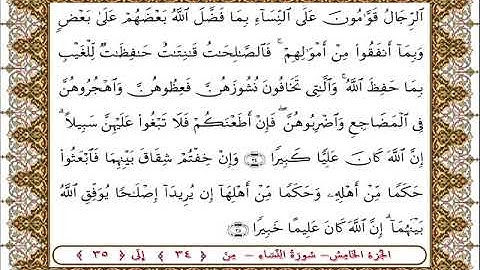 ٱلرِّجَالُ قَوَّٰمُونَ عَلَى ٱلنِّسَآءِ بِمَا فَضَّلَ ٱللَّهُ بَعْضَهُمْ عَلَىٰ بَعْضٍ
وَبِمَآ أَنفَقُوا۟ مِنْ أَمْوَٰلِهِمْ ۚ فَٱلصَّٰلِحَٰتُ قَٰنِتَٰتٌ حَٰفِظَٰتٌ لِّلْغَيْبِ
بِمَا حَفِظَ ٱللَّهُ ۚ وَٱلَّٰتِى تَخَافُونَ نُشُوزَهُنَّ فَعِظُوهُنَّ وَٱهْجُرُوهُنَّ
فِى ٱلْمَضَاجِعِ وَٱضْرِبُوهُنَّ ۖ فَإِنْ أَطَعْنَكُمْ فَلَا تَبْغُوا۟ عَلَيْهِنَّ سَبِيلًا ۗ
إِنَّ ٱللَّهَ كَانَ عَلِيًّا كَبِيرًا ﴿٣٤﴾ وَإِنْ خِفْتُمْ شِقَاقَ بَيْنِهِمَا فَٱبْعَثُوا۟
حَكَمًا مِّنْ أَهْلِهِۦ وَحَكَمًا مِّنْ أَهْلِهَآ إِن يُرِيدَآ إِصْلَٰحًا يُوَفِّقِ ٱللَّهُ
بَيْنَهُمَآ ۗ إِنَّ ٱللَّهَ كَانَ عَلِيمًا خَبِيرًا ﴿٣٥﴾
الجزء الخامس - سورة النساء - من ﴿ ٣٤ ﴾ إلى ﴿ ٣٥ ﴾